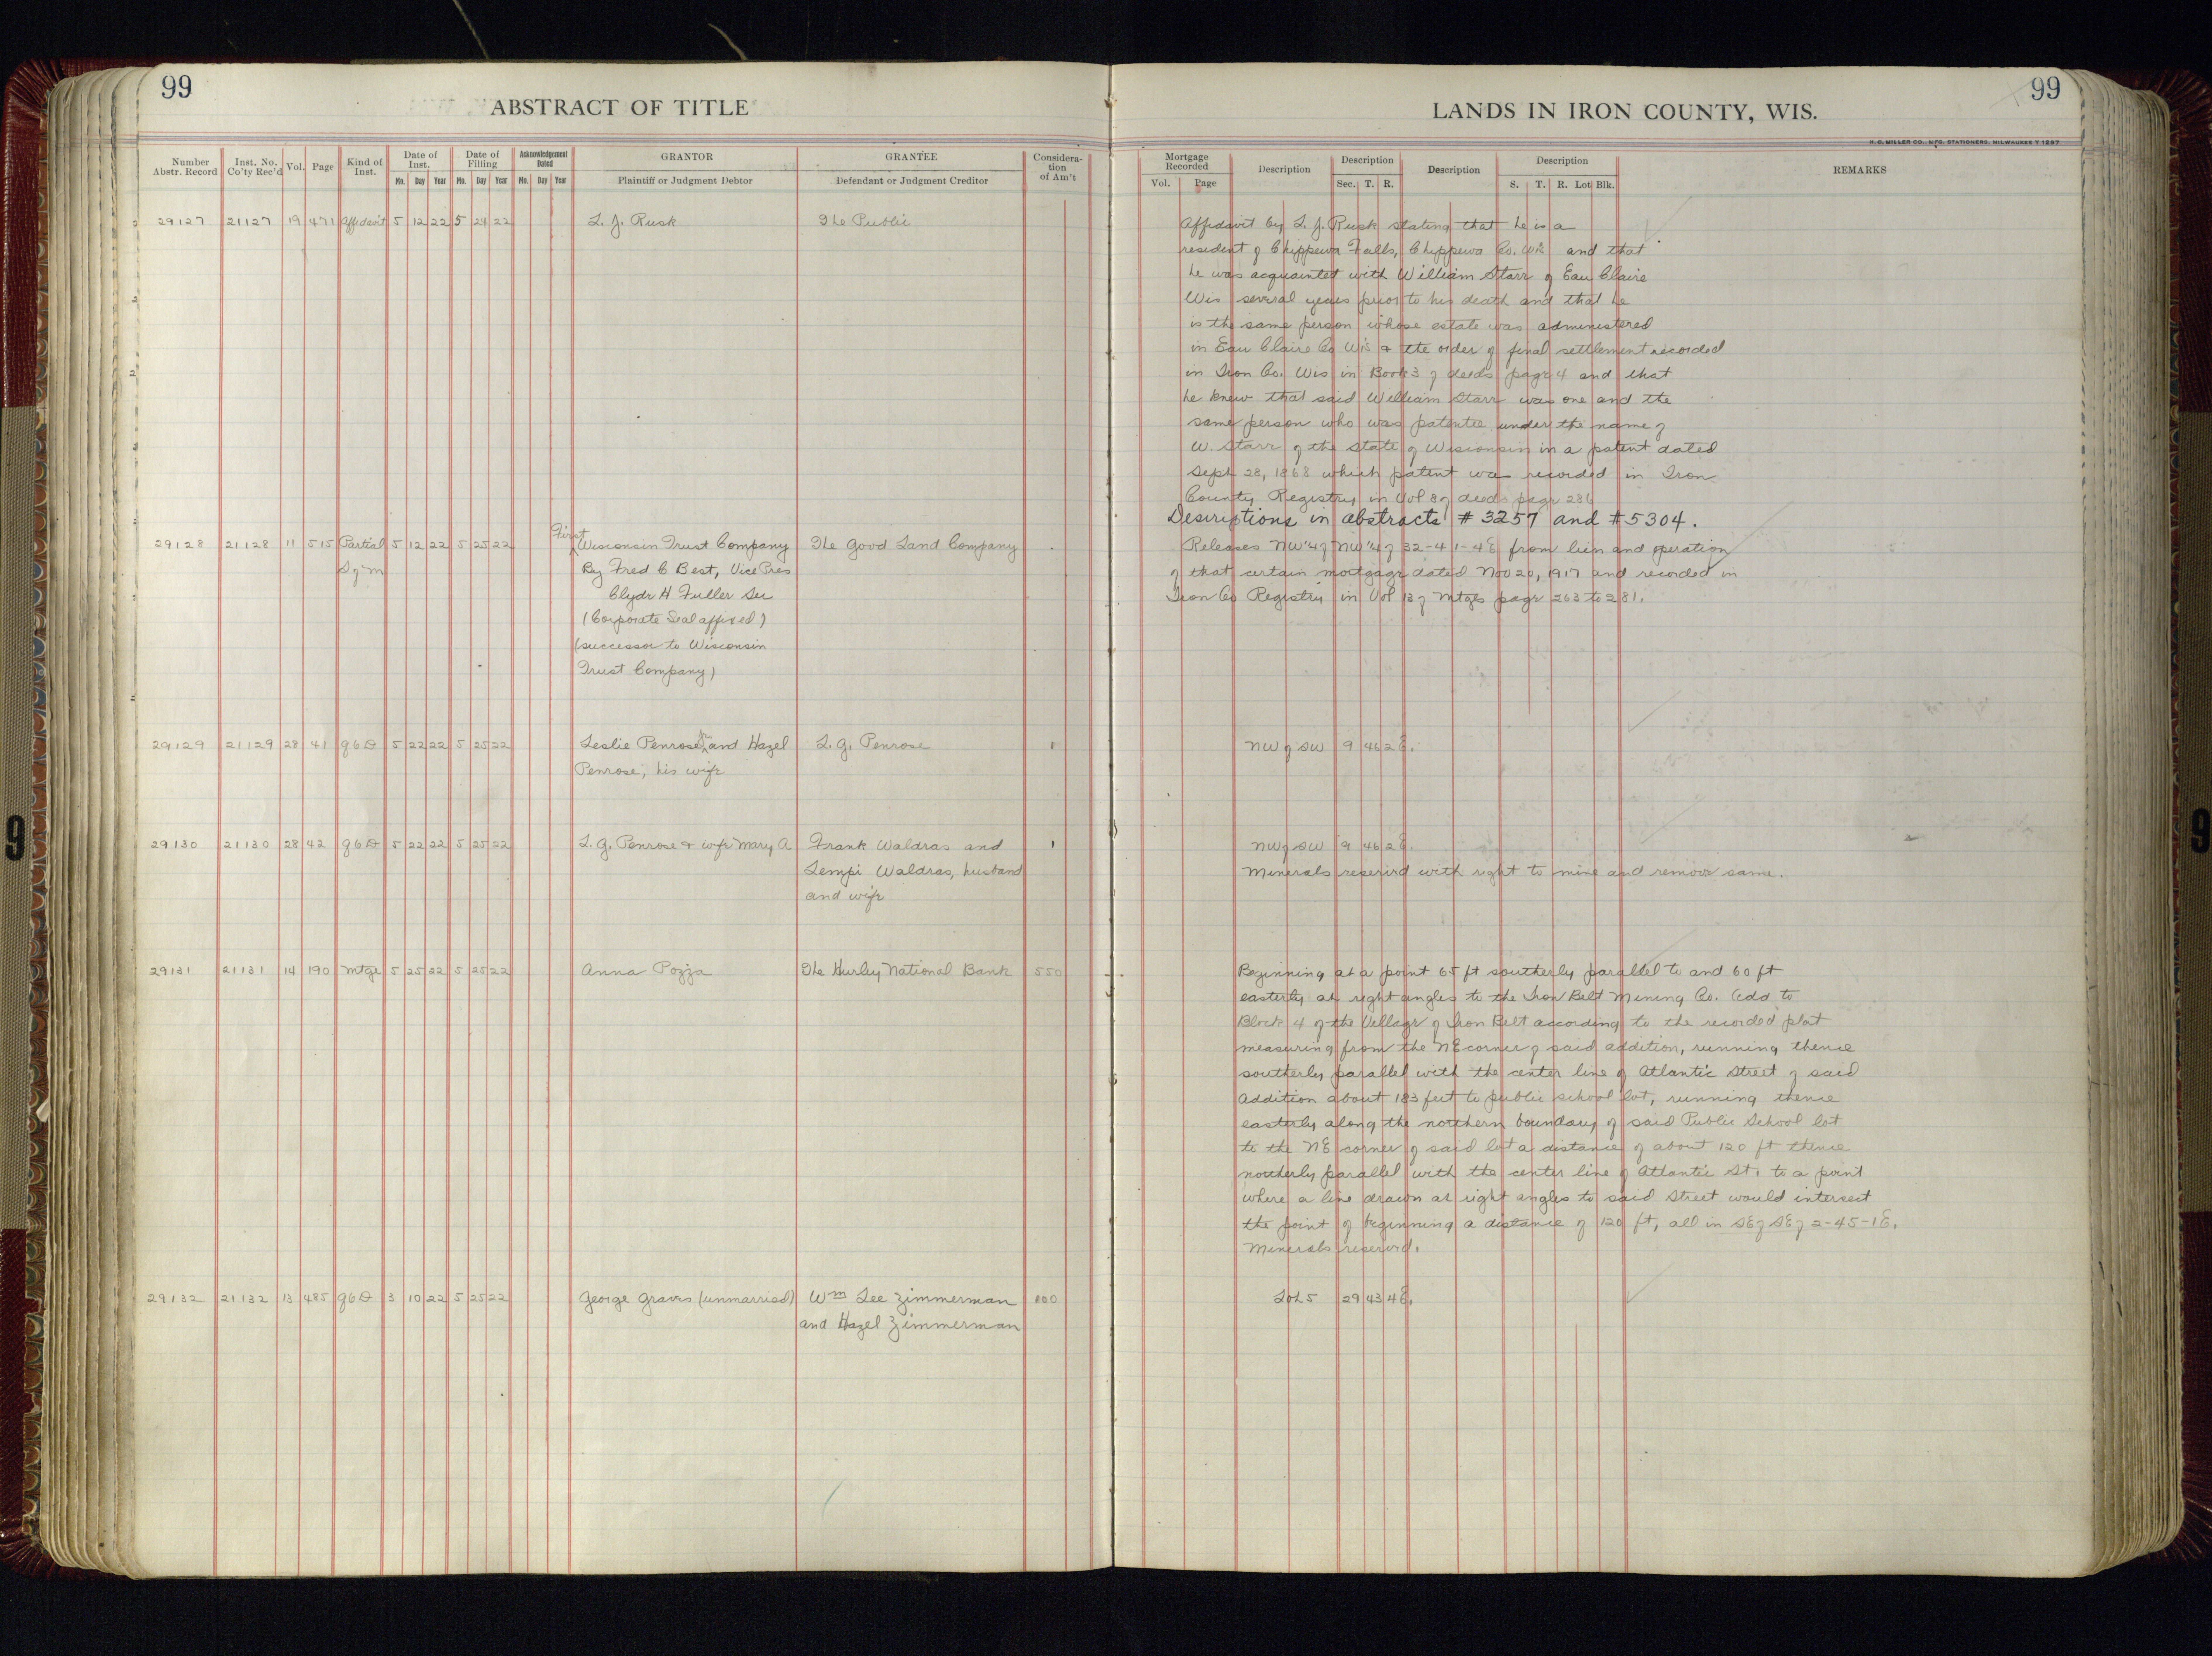 99
ABSTRACT OF TITLE
Number Abstr. Record	Inst. No. Co'ty Rec'd	Vol.	Page	Kind of Inst.	Date of Inst. Mo. Day Year	Date of Filing Mo. Day Year	Acknowledgement Dated Mo. Day Year	GRANTOR Plaintiff or Judgment Debtor	GRANTEE Defendant or Judgment Creditor	Considera-tion of Am't
29127 21127 19 471 Affidavit 5 12 22 5 24 22 L. J. Rusk The Public
29128 21128 11 515 Partial 5 12 22 5 25 22 First Wisconsin Trust Company The Good Land Company
S of M By Fred C Best, Vice Pres
Clyde H Fuller Sec
(Corporate Seal affixed)
(successor to Wisconsin
Trust Company)
29129 21129 28 41 Q C D 5 22 22 5 25 22 Leslie Penrose and Hazel L. G. Penrose 1
Penrose, his wife
29130 21130 28 42 Q C D 5 22 22 5 25 22 L. G. Penrose & wife Mary A Frank Waldras and 1
Lempi Waldras, husband
and wife
29131 21131 14 190 Mtge 5 25 22 5 25 22 Anna Pozza The Hurley National Bank 550
29132 21132 13 485 Q C D 3 10 22 5 25 22 George Graves (unmarried) Wm Lee Zimmerman 100
and Hazel Zimmerman
99
LANDS IN IRON COUNTY, WIS.
H. C. MILLER CO., MFG. STATIONERS, MILWAUKEE Y1297
Mortgage Recorded Vol. Page	Description	Description Sec. T. R.	Description	Description S. T. R. Lot Blk.	REMARKS
Affidavit by L. J. Rusk stating that he is a
resident of Chippewa Falls, Chippewa Co. Wis and that
he was acquainted with William Starr of Eau Claire
Wis several years prior to his death and that he
is the same person whose estate was administered
in Eau Claire Co Wis & the order of final settlement recorded
in Iron Co. Wis in Book 3 of deeds page 4 and that
he knew that said William Starr was one and the
same person who was patentee under the name of
W. Starr of the State of Wisconsin in a patent dated
Sept 28, 1868 which patent was recorded in Iron
County Registry in Vol 8 of deeds page 286
Descriptions in abstracts #3257 and #5304.
Releases NW¼ of NW¼ of 32-41-4E from lien and operation
of that certain mortgage dated Nov 20, 1917 and recorded in
Iron Co Registry in Vol 12 of Mtges page 263 to 281.
NW of SW 9 46 2E.
NW of SW 9 46 2E.
Minerals reserved with right to mine and remove same.
Beginning at a point 65 ft southerly parallel to and 60 ft
easterly at right angles to the Iron Belt Mining Co. Add to
Block 4 of the Village of Iron Belt according to the recorded plat
measuring from the NE corner of said addition, running thence
southerly parallel with the center line of Atlantic Street of said
Addition about 183 feet to public school lot, running thence
easterly along the northern boundary of said Public School lot
to the NE corner of said lot a distance of about 120 ft thence
northerly parallel with the center line of Atlantic St. to a point
where a line drawn at right angles to said Street would intersect
the point of beginning a distance of 120 ft, all in SE of SE of 2-45-1E.
Minerals reserved.
Lot 5 29 43 4E.